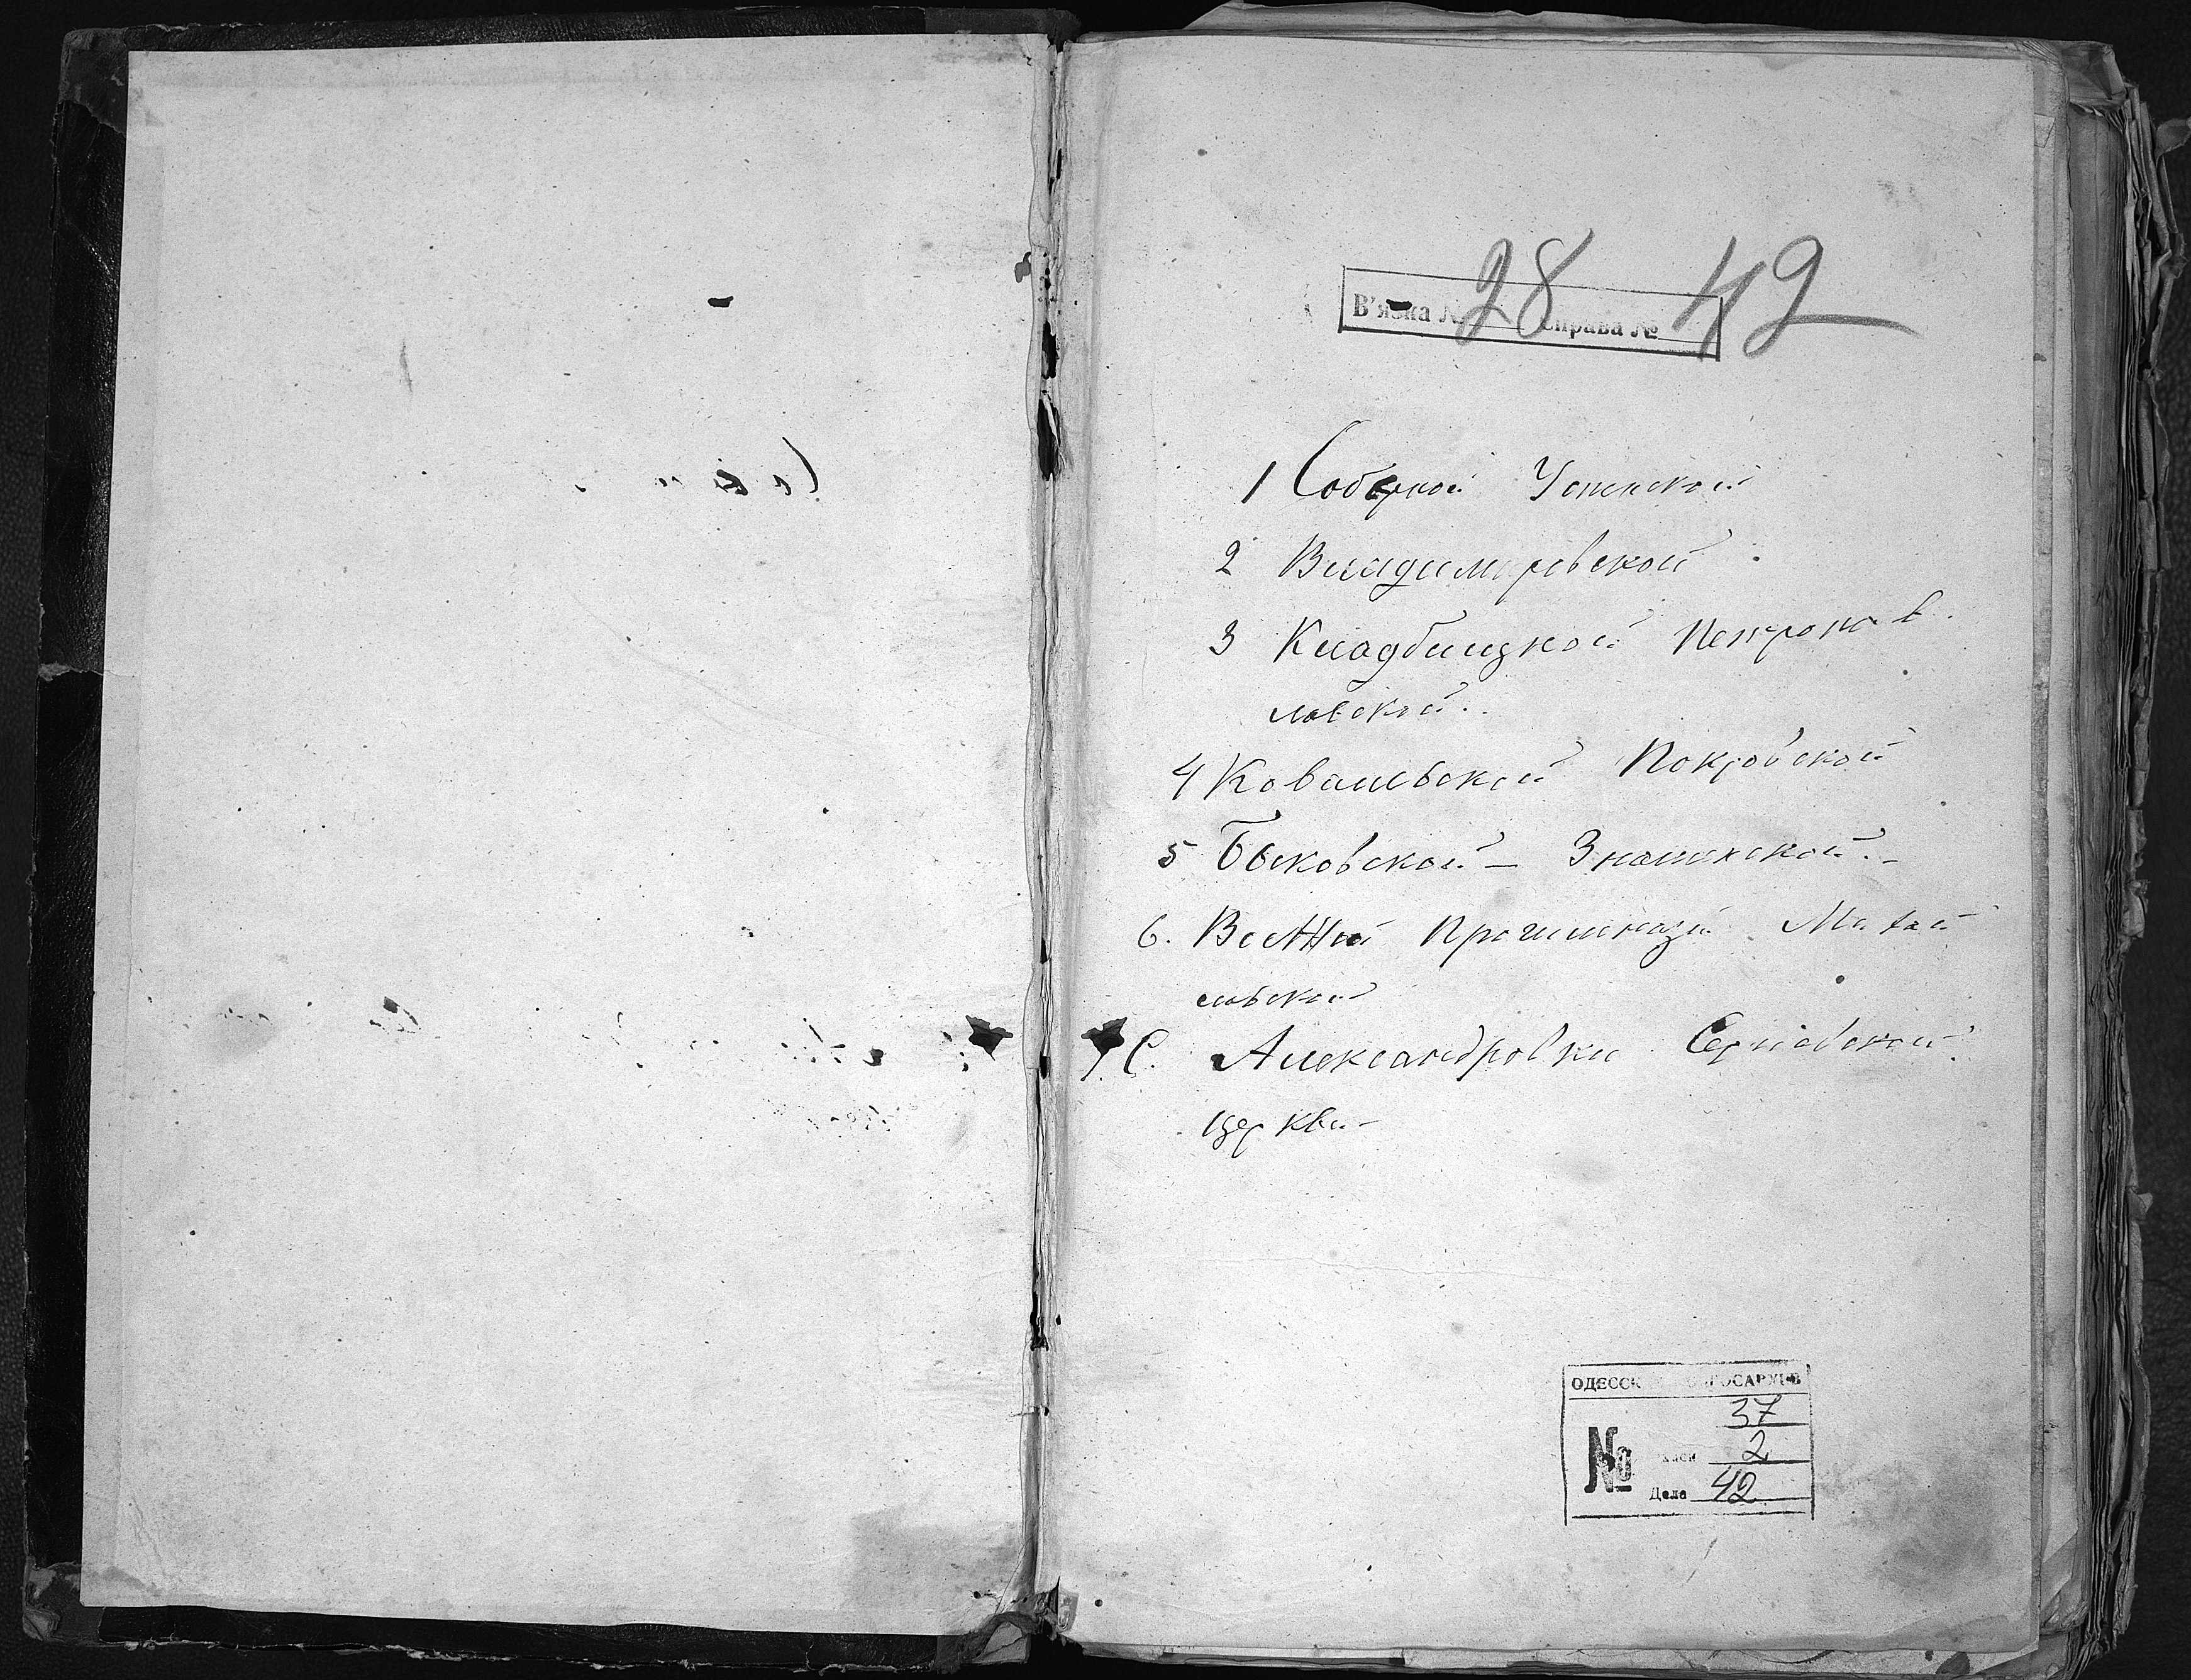 В'язка № 28 Справа № 42
1 Соборной Успенской
2 Владимировской
3 Кладбищной Петропав
ловской.
4 Ковалевской Покровской
5 Быковской - Знаменской. -
6. Прогимназии Михай
ловской
С. Александровки Сергиевской
церкви -
ОДЕССК ГОСАРХИВ
37
№ 2
Дела 42